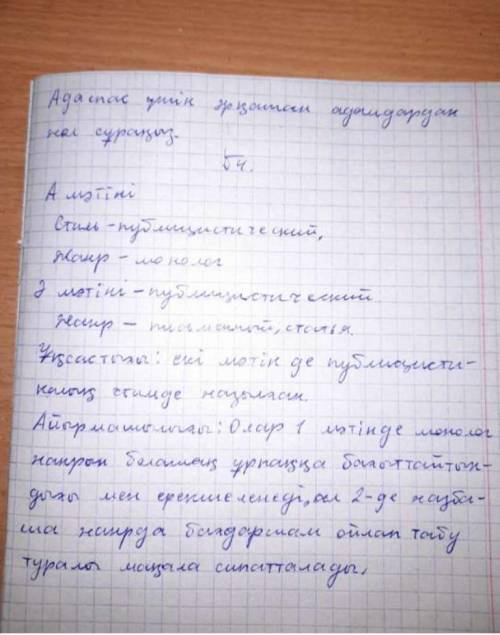 Адаспас үшін әрқашан адамдардан
жол сұраңыз.
5 4.
А мәтіні
Стиль - публицистический,
Жанр - монолог
Ә мәтіні - публицистический
Жанр - письменный, статья.
Ұқсастығы: екі мәтін де публицисти-
калық стильде жазылған.
Айырмашылығы: Олар 1 мәтінде монолог
жанрын болашақ ұрпаққа бағыттайтын-
дығы мен ерекшеленеді, ал 2-де жазба-
ша жанрда бағдарлама ойлап табу
туралы мақала сипатталады.